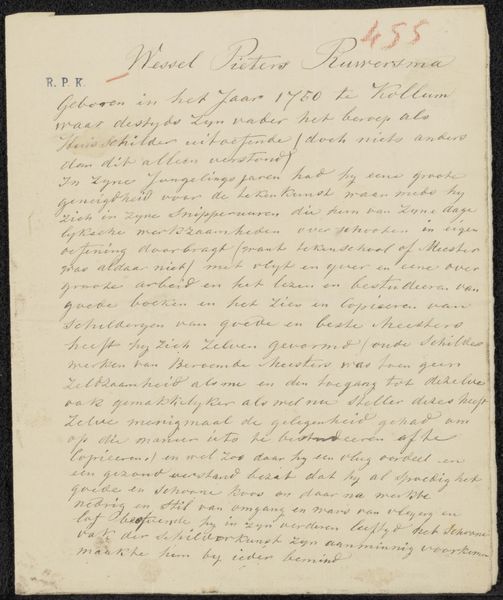 455
Wessel Pieters Ruwersma
R. P. K.
Geboren in het Jaar 1750 te Kollum
waar destyds zyn vader het beroep als
Huisschilder uitoefende (doch niets anders
dan dit alleen verstond)
In zyne Jongelings jaren had hy eene groote
geneigdheid voor de tekenkunst waar mede hy
zich in zyne snipperuuren die hem van zyne dage
lyksche werkzaamheden overschooten in eigen
oefening doorbragt (want tekenschool of Meester
was aldaar niet) met vlyt en yver en eene over
groote arbeid en het lezen en bestuderen van
goede boeken en het zien en Copiseren van
schilderyen van goede en beste Meesters
heeft hy zich zelven gevormd (oude schilder
werken van Beroemde Meesters was toen geen
zeldzaamheid als nu en den toegang tot dezelve
ook gemakkelyker als wel nu steller dezes heeft
zelve menigmaal de gelegenheid gehad om
op die manier iets te bestudeeren of te
Copieeren) en wel zoo daar hy een vlug oordeel en
een gezond verstand bezat dat hy al spoedig het
goede en schoone koos en daar na werkte
nedrig en stil van omgang en wars van vleyery en
lof beoefende hy in zyn verderen leeftyd het schoone
vak der schilderkunst zyn aanminnig voorkomen
maakte hem by ieder bemind